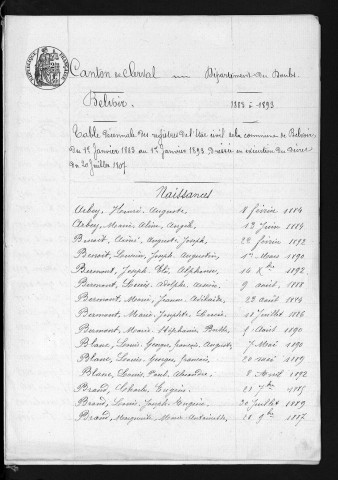 Canton de Clerval Département du Doubs
Belvoir 1883 à 1893
Table décennale des registres de l'état civil de la commune de Belvoir
du 1er Janvier 1883 au 1er Janvier 1893 dressée en exécution du décret
du 20 Juillet 1807
Naissances
Arbey, Henri, Auguste 8 février 1884
Arbey, Marie 13 Juin 1884
Benoit, Auguste, Joseph 22 février 1892
Benoit, Joseph, Augustin Mars 1890
Bermont, Joseph, Elie, Alphonse 14 Xbre 1892
Bermont, Louis, Adolphe 9 août 1888
Bermont, Marie, Jeanne, Adélaïde 22 août 1884
Bermont, Marie, Josephte 11 Juillet 1886
Bermont, Marie, Stéphanie, Berthe 1 Août 1890
Blanc, Louis, Georges, françois, Auguste 7 Mai 1890
Blanc, Louis, Georges, francois 20 mai 1889
Blanc, Louis, Paul, Alexandre 8 Août 1892
Brand, Charles, Eugène 21 7bre 1885
Brand, Louis, Joseph, Eugène 20 Juillet 1889
Brand, Marguerite, Marie, Antoinette 28 9bre 1887